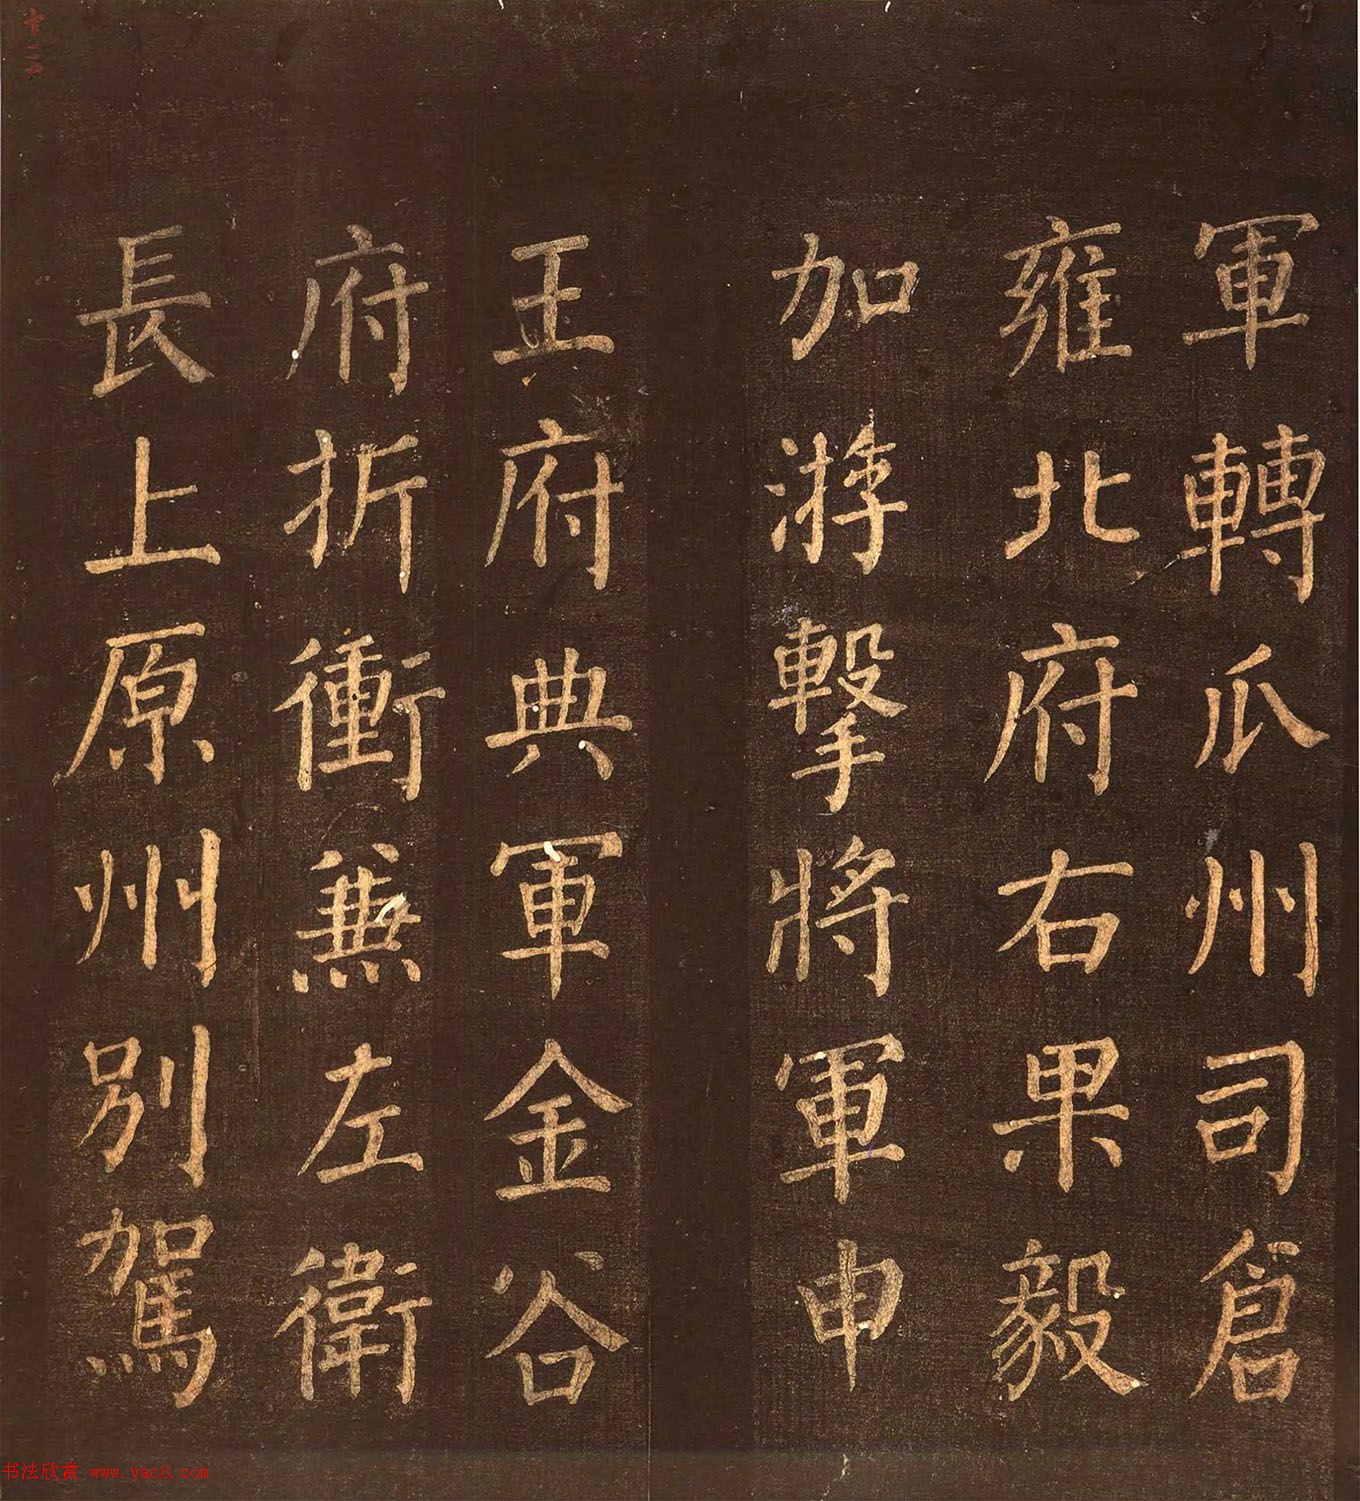 軍轉瓜州司倉
雍北府右果毅
加游擊將軍申
王府典軍金谷
府折衝兼左衛
長上原州別駕
书法欣赏 www.yac8.com